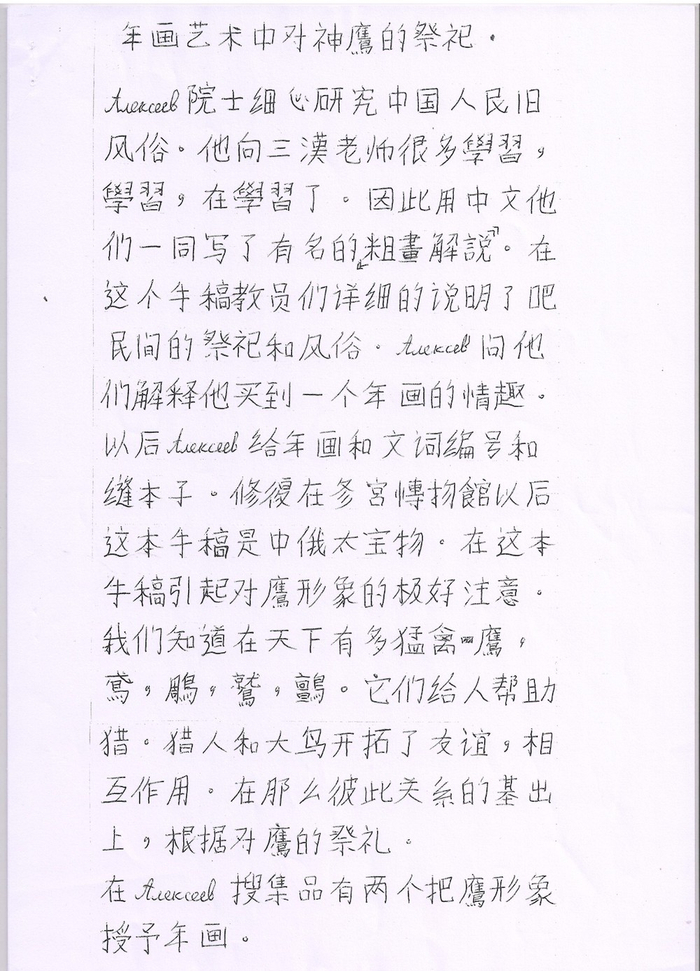 年画艺术中对神鹰的祭祀.
Алексеев院士细心研究中国人民旧
风俗。他向三漢老师很多學習,
學習,在學習了。因此用中文他
们一同写了有名的「粗畫解説」。在
这个手稿教员们详细的说明了吧
民间的祭祀和风俗. Алексеев问他
们解释他买到一个年画的情趣。
以后Алексеев给年画和文词编号和
缝本子。修復在冬宮博物館以后
这本手稿是中俄太宝物。在这本
手稿引起对鹰形象的极好注意。
我们知道在天下有多猛禽—鹰,
鸢,鵰,鷲,鸇。它们给人帮助
猎。猎人和大鸟开拓了友谊,相
互作用。在那么彼此关系的基出
上,根据对鹰的祭礼。
在Алексеев 搜集品有两个把鹰形象
授予年画。